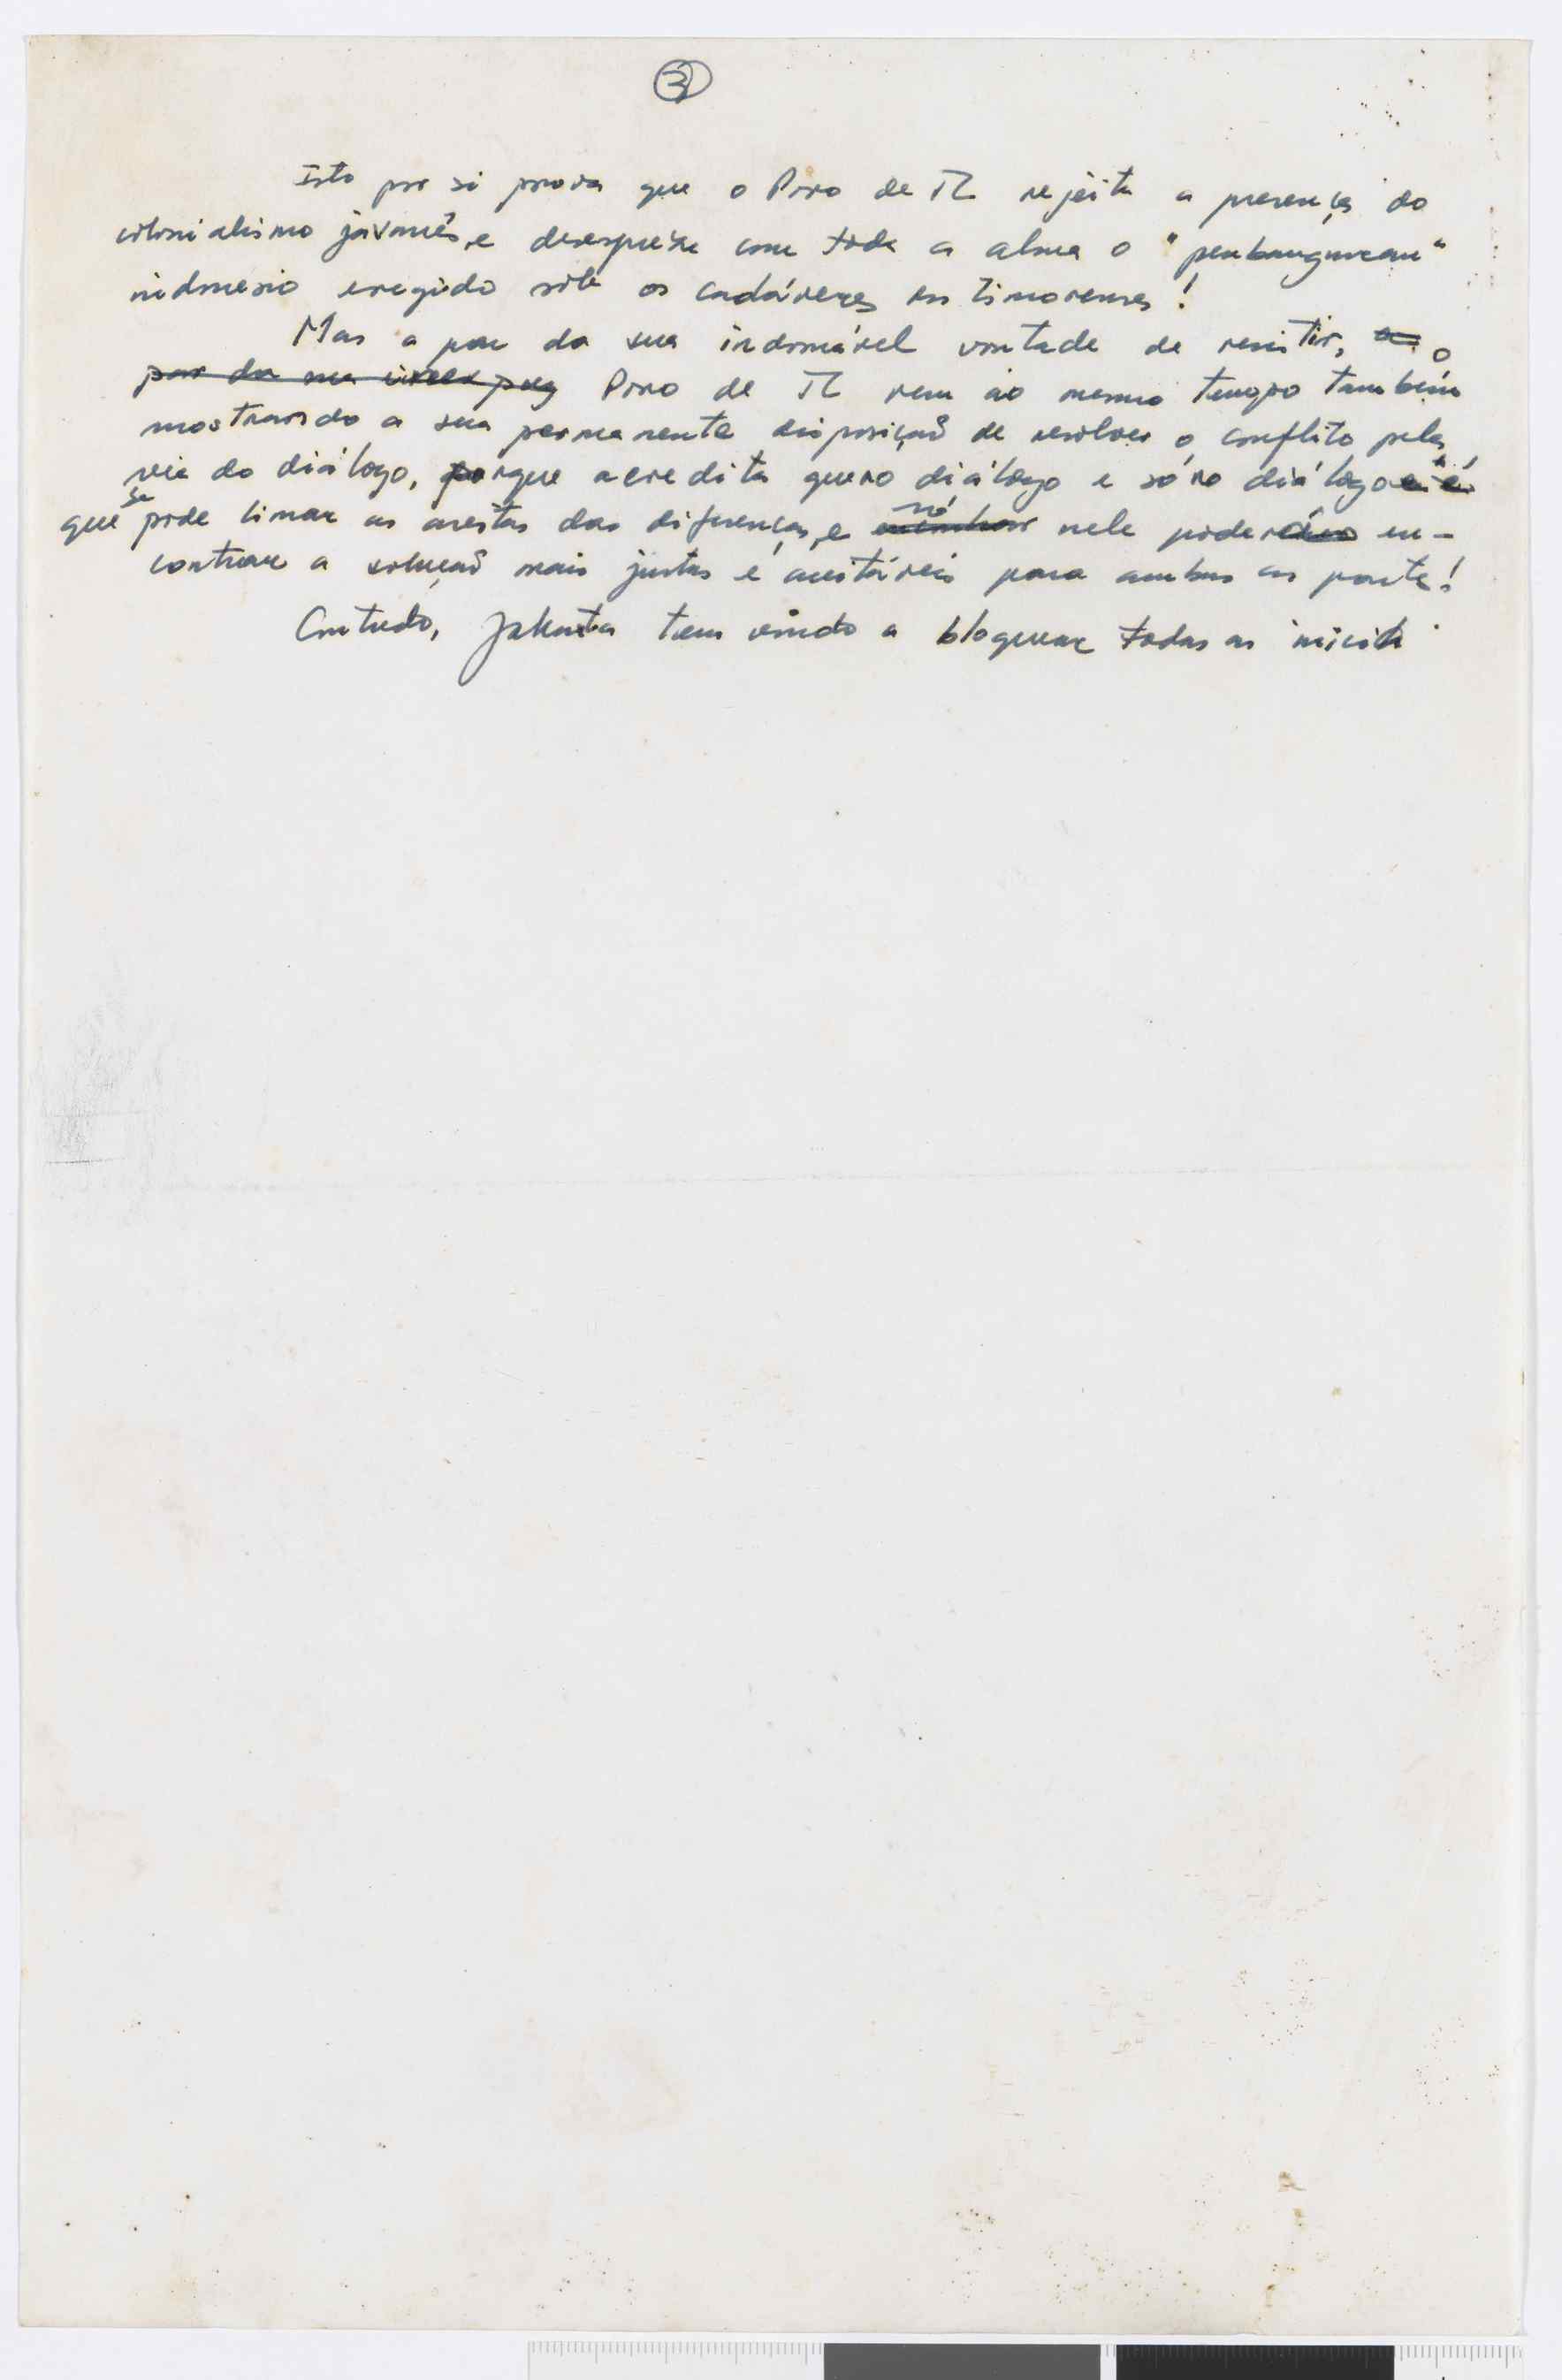 3
Isto por si prova que o Povo de TL rejeita a presença do
colonialismo javanês, e despreza com toda a alma o "penbangunean"
indonesio eregido sob os cadáveres dos timorenses!
Mas a par da sua indomável vontade de resistir, o
par da sua Povo de TL vem ao mesmo tempo também
mostrando a sua permanente disposição de resolver o conflito pela
via do diálogo, porque acredita que no diálogo e só no diálogo é
que se pode limar as arestas das diferenças, e só nele poderá en-
contrar a solução mais justas e aceitáveis para ambas as parte!
Contudo, Jakarta tem vindo a bloquear todas as inicia